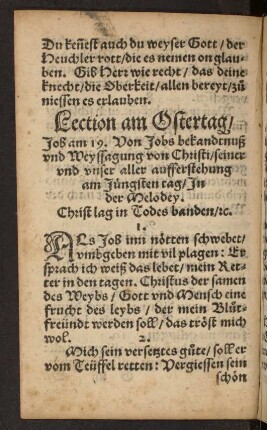 Du keñest auch du weyser Gott / der
Heuchler rott / die es nemen on glau-
ben. Gib Herr wie recht / das deine
knecht / die Oberkeit / allen bereyt / zů
niessen es erlauben.
Lection am Ostertag /
Job am 19. Von Jobs bekandtnuß
vnd Weyssagung von Christi / seiner
vnd vnser aller aufferstehung
am Jüngsten tag / In
der Melodey.
Christ lag in Todes banden / ꝛc.
1.
ALs Job inn nötten schwebet /
vmbgeben mit vil plagen: Er
sprach ich weiß das lebet / mein Ret-
ter in den tagen. Christus der samen
des Weybs / Gott vnd Mensch eine
frucht des leybs / der mein Blůt-
freündt werden soll / das tröst mich
wol. 2.
Mich sein versetztes gůte / soll er
vom Teüffel retten: Vergiessen sein
schön